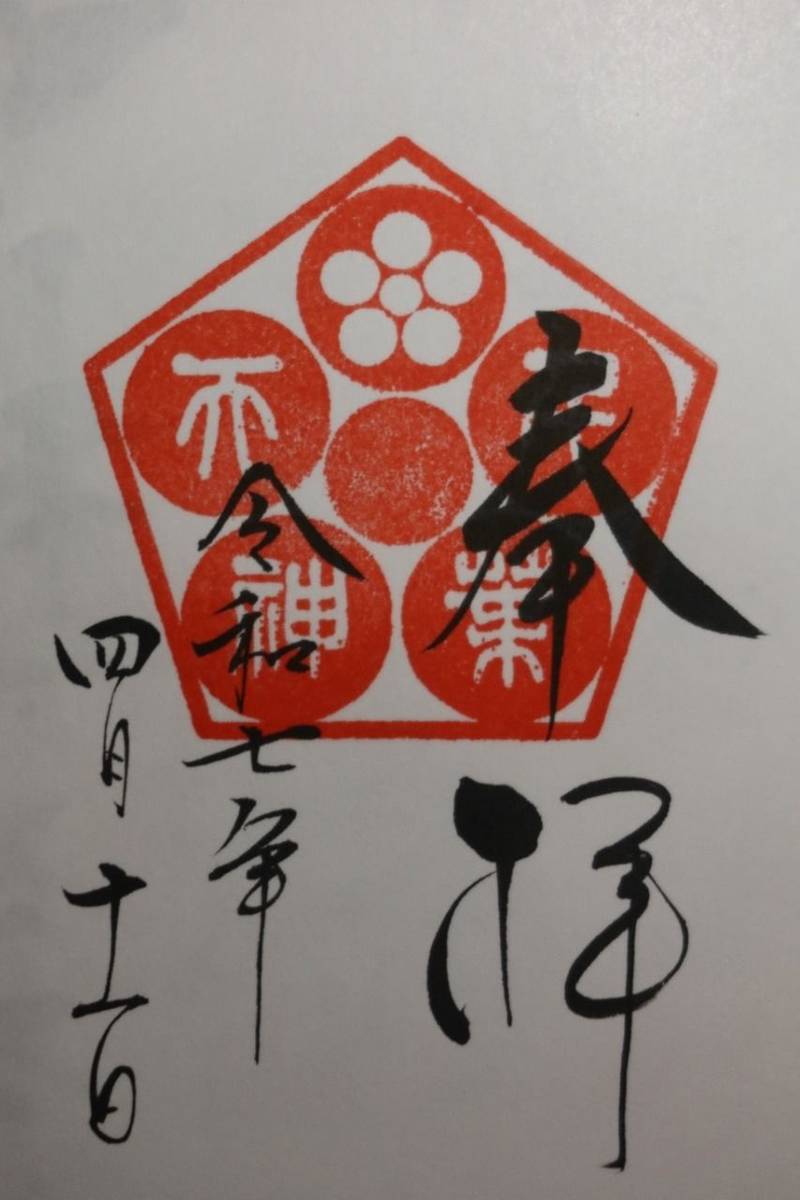 奉拝
千葉
天神
令和七年
四月十一日